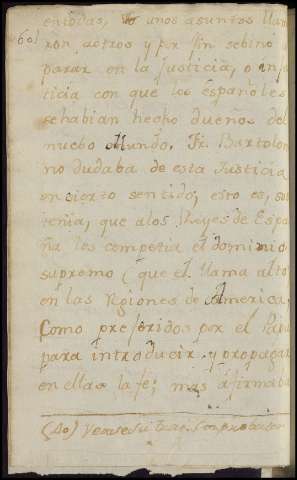 en todas, unos asuntos llama
ron aotros y por fin sebino à
parar en la Justicia, o injus
ticia con que los españoles
sehabian hecho dueños del
nuebo Mundo. Fr. Bartolo
no dudaba de esta Justicia
en cierto sentido, esto es, sos
tenia, que alos Reyes de Espa
ña les competia el dominio
supremo (que el llama alto)
en las Regiones de America,
Como preferidos por el Papa
para introducir y propagar
en ellas la fé; mas afirmaba
(40) Vease su trac. Comprobator